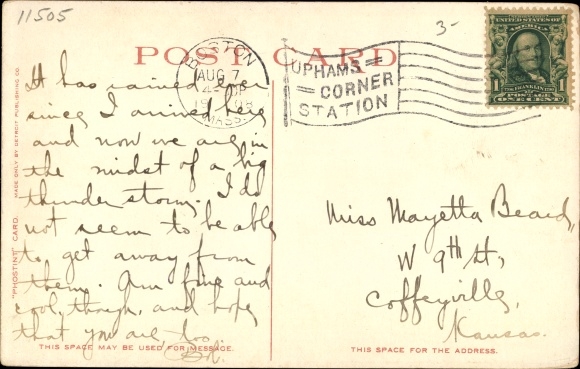 11505
3-
POST CARD
BOSTON
AUG 7
MASS.
UPHAMS
CORNER
STATION
UNITED STATES OF AMERICA
1 1
POSTAGE
ONE CENT
It has rained ever
since I arrived here
and now we are in
the midst of a big
thunder storm. I do
not seem to be able
to get away from
them. Am fine and
cool, though, and hope
that you are, too.
Miss Mayetta Beard,
W 9th St,
Coffeyville,
Kansas.
"PHOSTINT" CARD. MADE ONLY BY DETROIT PUBLISHING CO.
THIS SPACE MAY BE USED FOR MESSAGE.
THIS SPACE FOR THE ADDRESS.